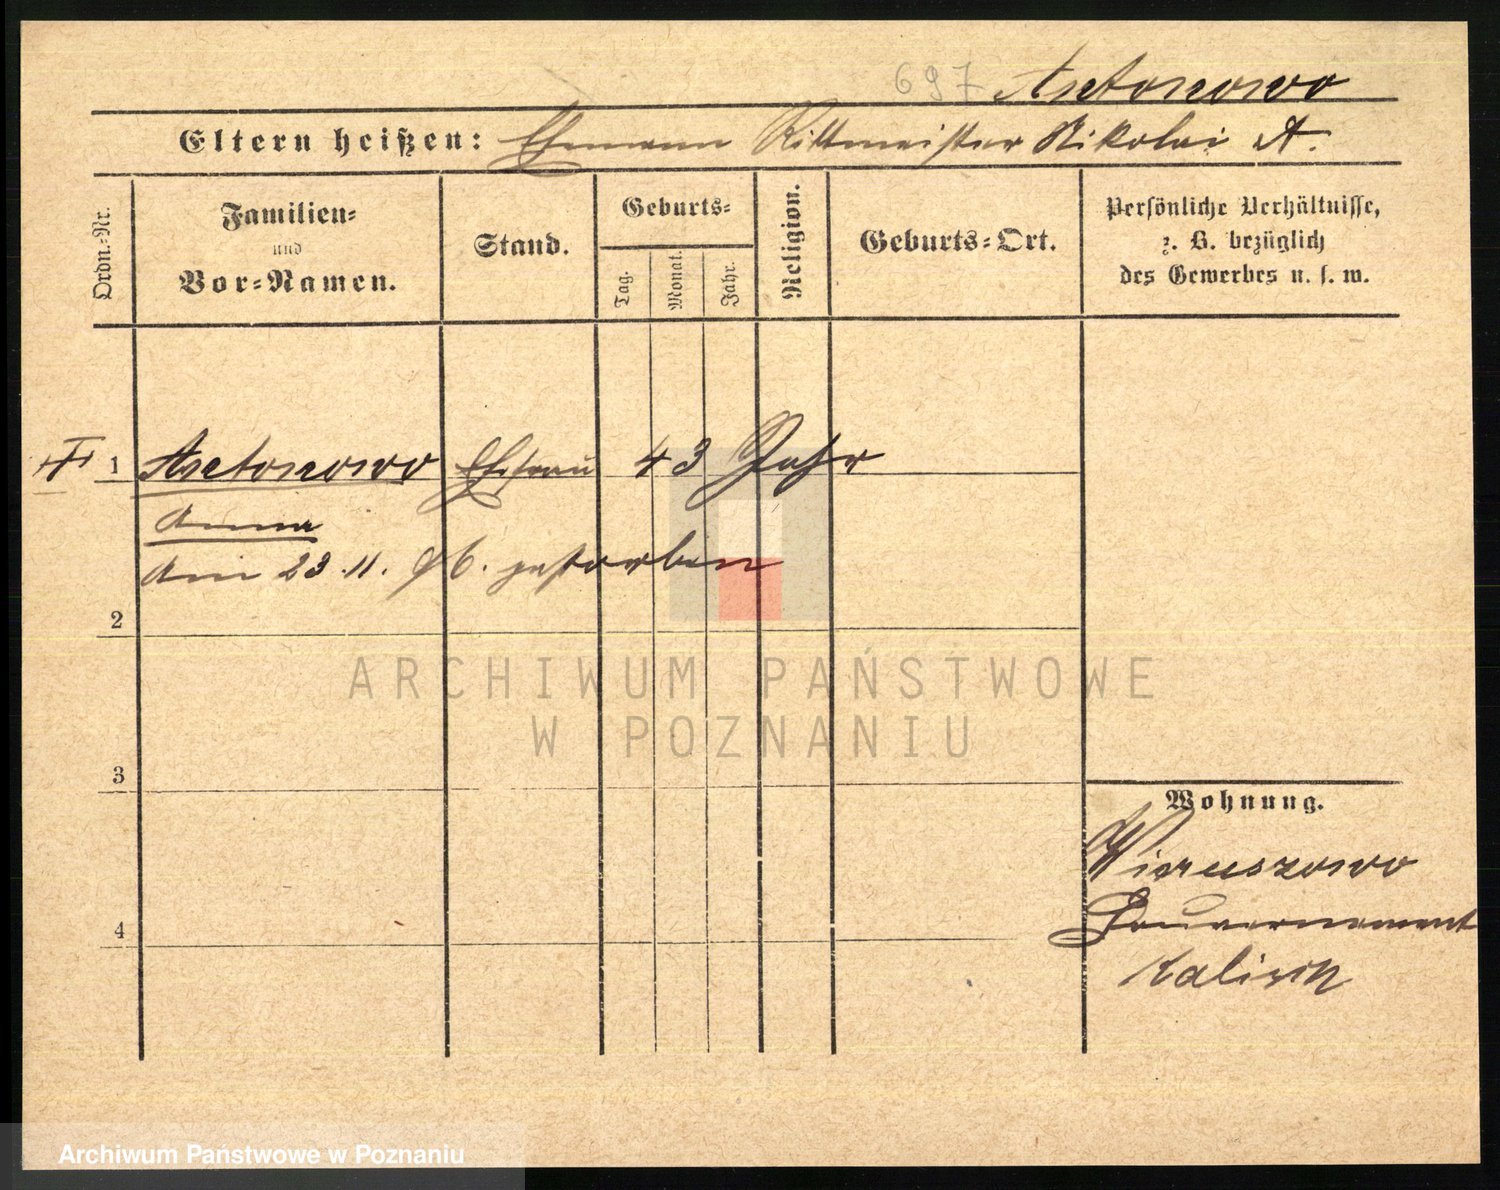 697 Antonowo
Eltern heißen: Ehemann Rittmeister Nikolai A.
Ordn.-Nr.
Familien-
und
Vor-Namen.
Stand.
Geburts-
Tag.
Monat.
Jahr.
Religion.
Geburts-Ort.
Persönliche Verhältnisse,
z. B. bezüglich
des Gewerbes u. s. w.
1 Antonowo Ehefrau 43 Jahr
Anna
Am 23.11.96. gestorben
2
3
4
Wohnung.
Wieruszowo
Gouvernement
Kalisch
ARCHIWUM PAŃSTWOWE
W POZNANIU
Archiwum Państwowe w Poznaniu